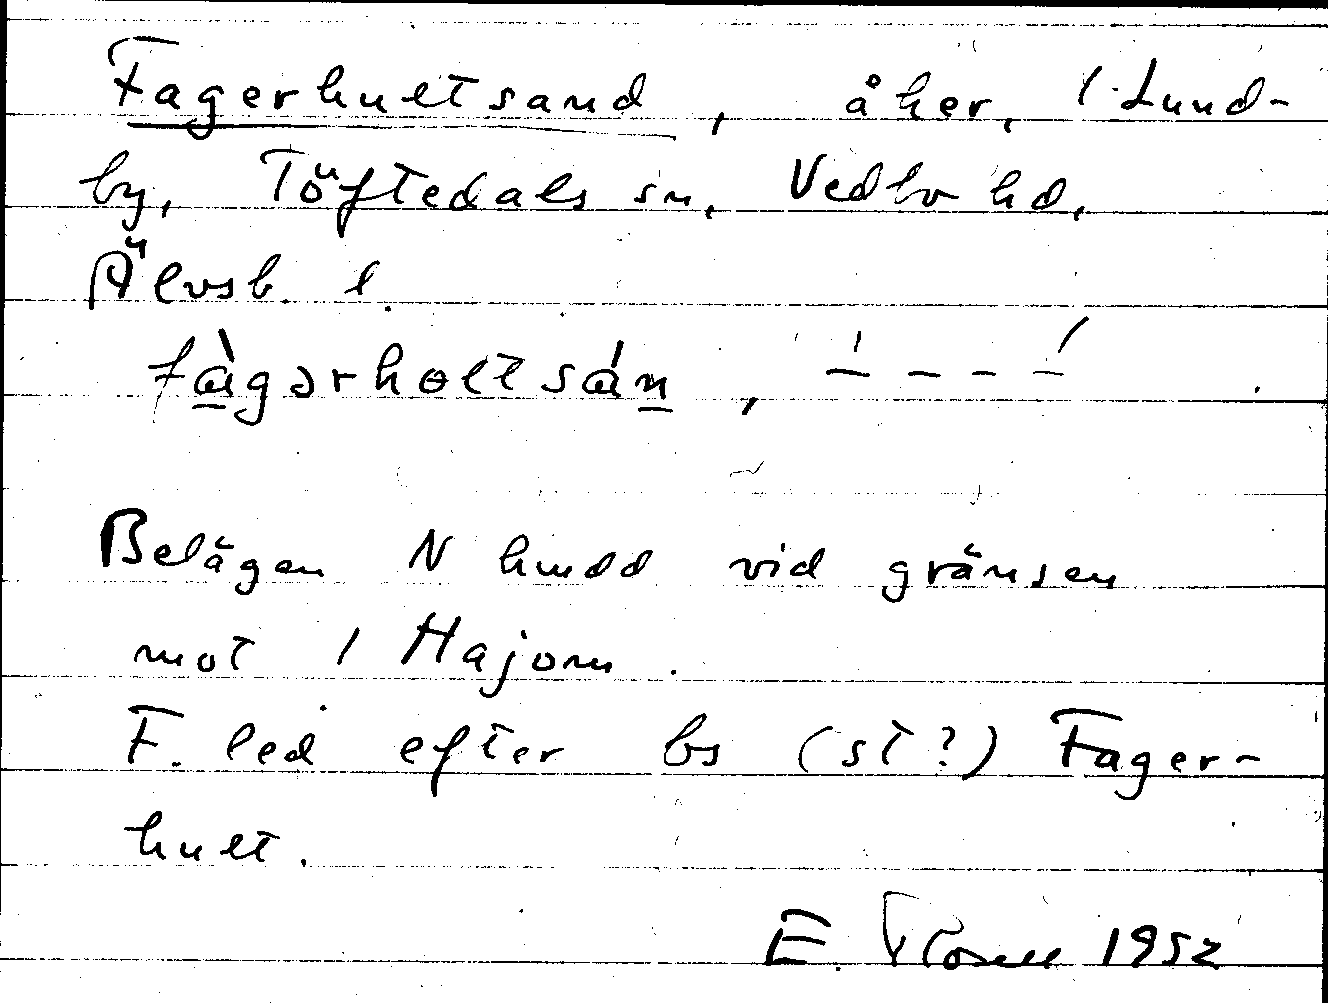 Fagerhultsand, åker, 1 Lund-
by, Töftedals sn, Vedbo hd,
Älvsb. l.
fàgərholtsán, – – – –
Belägen N hmdd vid gränsen
mot 1 Hajom.
F. led efter bs (st?) Fager-
hult.
E. 1952